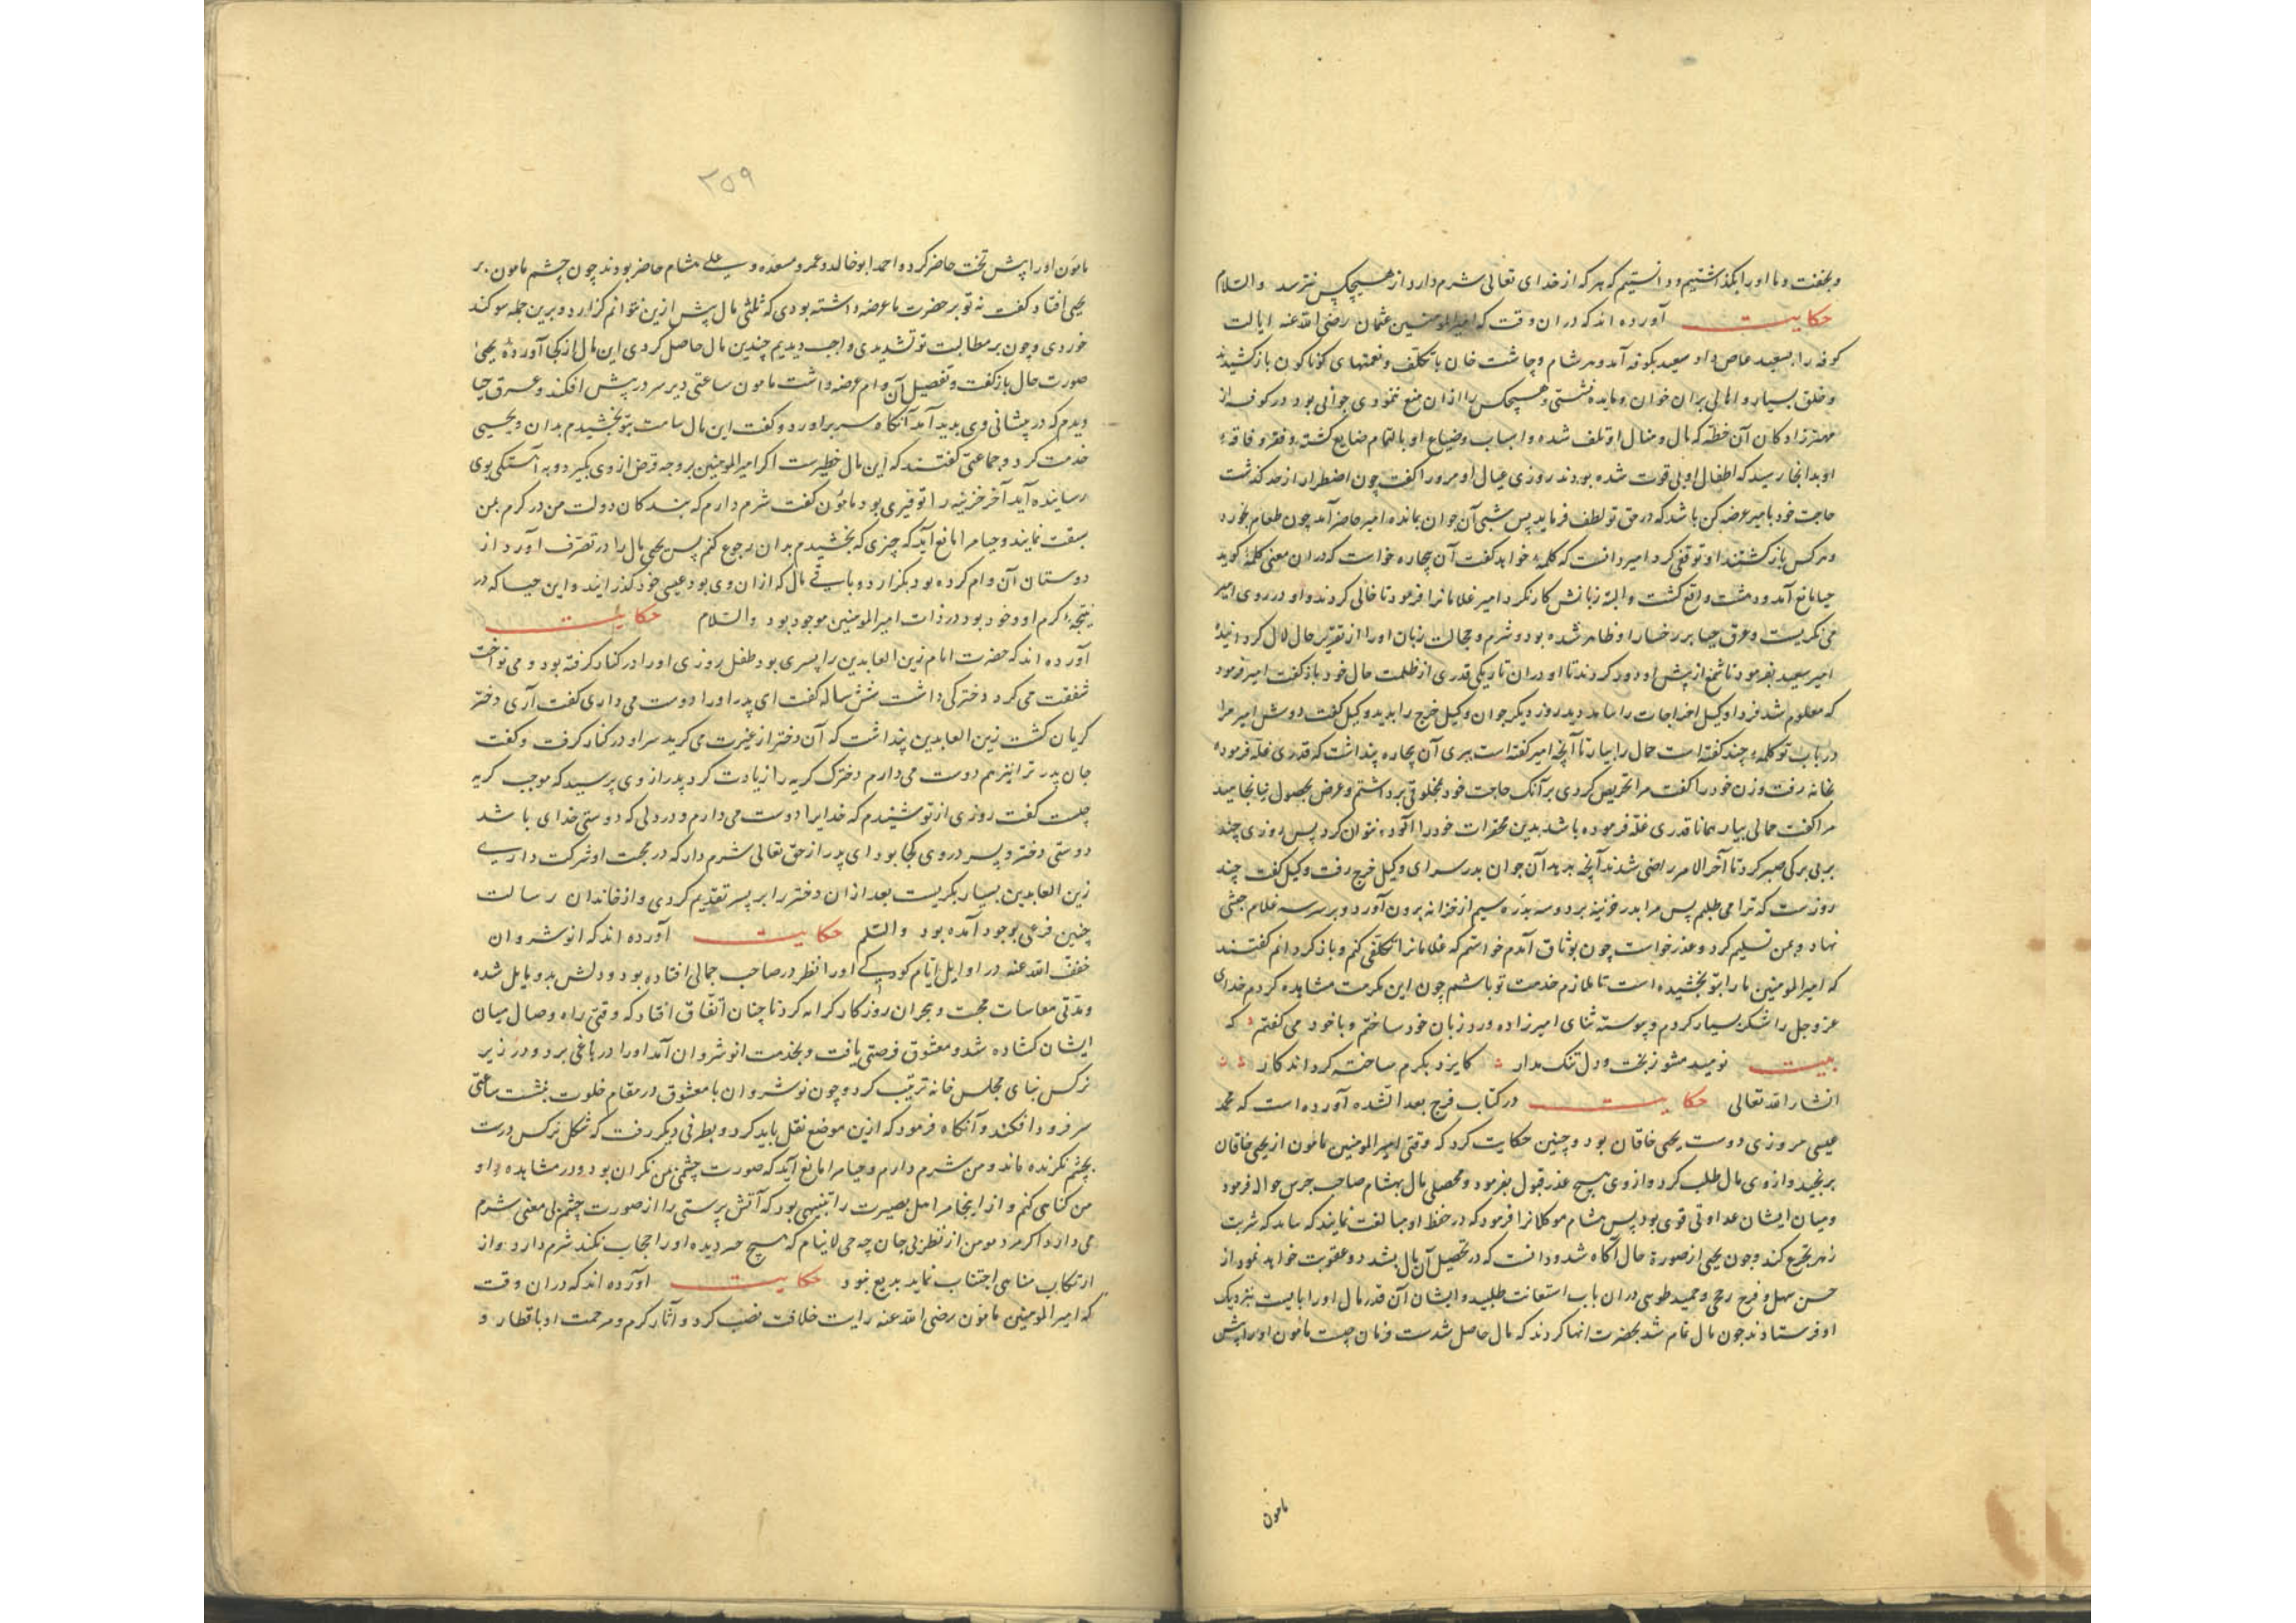 و بخفت و ما او را بگذاشتیم و دانستیم که هر که از خدای تعالی شرم دارد از هیچکس نترسد والسلام
حکایت آورده اند که دران وقت که امیرالمومنین عثمان رضی الله عنه ایالت
کوفه را بسعید عاص داد سعید بکوفه آمد و هر شام و چاشت خان با تکلف و نعمتهای کوناکون باز کشیدند
و خلق بسیار و اهالی بران خوان و مایده نشستی و هیچکس را ازان منع ننمودی جوانی بود در کوفه از
مهتر زادکان آن خطه که مال و منال او تلف شده و اسباب و ضیاع او بالتمام ضایع کشته و فقر و فاقه
او بدانجا رسید که اطفال او بی قوت شده بودند روزی عیال او مر ورا کفت چون اضطرار از حد کذشت
حاجت خود بامیر عرضه کن باشد که در حق تو لطف فرماید پس شبی آن جوان بمائده امیر حاضر آمد چون طعام بخورد
و هرکس باز کشتند او توقفی کرد امیر دانست که کلمه خواهد کفت آن بیچاره خواست که دران معنی کلمه کوید
حیا مانع آمد و دهشت واقع کشت و البته زبانش کار نکرد امیر غلامانرا فرمود تا خالی کردند و او در روی امیر
می نکریست و عرق حیا بر رخسار او ظاهر شده بود و شرم و خجالت زبان او را از تقریر حال لال کردانید
امیر سعید بفرمود تا شمع از پیش او دور کردند تا او دران تاریکی قدری از ظلمت حال خود باز کفت امیر فرمود
که معلوم شد فردا وکیل اخراجات را بباید دید روز دیکر جوان وکیل خرج را بدید وکیل کفت دوش امیر مرا
در باب تو کلمه چند کفته است حمال را بیار تا آنچه امیر کفته است ببری آن بیچاره پنداشت که قدری غله فرموده
بخانه رفت و زن خود را کفت مرا تحریض کردی بر آنک حاجت خود بمخلوقی برداشتم و غرض بحصول نینجامید
مرا کفت حمالی بیار همانا قدری غله فرموده باشد بدین محقرات خود را آلوده نتوان کرد پس روزی چند
بر بی برکی صبر کرد تا آخر الامر راضی شدند آنچه بدهد آن جوان بدر سرای وکیل خرج رفت وکیل کفت چند
روزست که ترا می طلبم پس مرا بدر خزینه برد و سه بدره سیم از خزانه برون آورد و بر سر سه غلام حبشی
نهاد و بمن تسلیم کرد و عذر خواست چون بوثاق آمدم خواستم که غلامانرا تکلفی کنم و باز کردانم کفتند
که امیرالمومنین ما را بتو بخشیده است تا ملازم خدمت تو باشیم چون این مکرمت مشاهده کردم خدای
عز وجل را شکر بسیار کردم و پیوسته ثنای امیر زاده ورد زبان خود ساختم و با خود می کفتم که
بیت نومید مشو ز بخت و دل تنک مدار کایزد بکرم ساخته کرداند کار
انشاء الله تعالی حکایت در کتاب فرج بعد الشده آورده است که محمد
عیسی مروزی دوست یحیی خاقان بود و چنین حکایت کرد که وقتی امیر المومنین مامون از یحیی خاقان
برنجید و ازوی مال طلب کرد و از وی هیچ عذر قبول نفرمود و محصلی مال بهشام صاحب حرس حواله فرمود
و میان ایشان عداوتی قوی بود پس هشام موکلانرا فرمود که در حفظ او مبالغت نمایند که نباید که شربت
زهر تجرع کند و چون یحیی از صورة حال آکاه شد و دانست که در تحصیل آن مال بشدد و عقوبت خواهد نمود از
حسن سهل و فرج رخجی و حمید طوسی دران باب استعانت طلبید و ایشان آن قدر مال او را بالیت بنزدیک
او فرستادند چون مال تمام شد بحضرت انها کردند که مال حاصل شدست فرمان چیست مامون او را پیش
مامون
۳۵۹
مامون او را پیش تخت حاضر کرد و احمد ابو خالد و عمرو مسعده و علی هشام حاضر بودند چون چشم مامون بر
یحیی افتاد کفت نه تو بر حضرت ما عرضه داشته بودی که ثلثی مال پیش ازین نتوانم کزارد و برین جمله سوکند
خوردی و چون بر مطالبت تو تشدیدی واجب دیدیم چندین مال حاصل کردی این مال از کجا آورده یحیی
صورت حال باز کفت و تفصیل آن وام عرضه داشت مامون ساعتی دیر سر در پیش افکند و عرق حیا
دیدم که در پیشانی وی بدید آمد آنکاه سر براورد و کفت این مال بتو بخشیدم بدان و یحیی
خدمت کرد و جماعتی کفتند که این مال خطیرست اکر امیر المومنین بر وجه قرض از وی بکیرد و به آهستکی بوی
رسانیده آید آخر خزینه را توفیری بود مامون کفت شرم دارم که بندکان دولت من در کرم بمن
سبقت نمایند و حیا مرا مانع آید که چیزی که بخشیدم بدان رجوع کنم پس یحیی مال را در تصرف آورد از
دوستان آن وام کرده بود بکزارد و باقی مال که ازان وی بود عیسی خود کذرانید و این حیا که در
نتیجه کرم او وجود بود در ذات امیر المومنین موجود بود والسلام حکایت
آورده اند که حضرت امام زین العابدین را پسری بود طفل روزی او را در کنار کرفته بود و می نواخت
شفقت می کرد دخترکی داشت شش ساله کفت ای پدر او را دوست می داری کفت آری دختر
کریان کشت زین العابدین پنداشت که آن دختر از غیرت می کرید سر او در کنار کرفت و کفت
جان پدر ترا نیز هم دوست می دارم دخترک کریه را زیادت کرد پدر از وی پرسید که موجب کریه
چیست کفت روزی از تو شنیدم که خدایرا دوست می دارم و در دلی که دوستی خدای باشد
دوستی دختر و پسر دروی کجا بود ای پدر از حق تعالی شرم دار که در محبت او شرکت داری
زین العابدین بسیار بکریست بعد ازان دختر را بر پسر تقدیم کردی و از خاندان رسالت
چنین فرعی بوجود آمده بود والسلم حکایت آورده اند که انوشروان
خفف الله عنه در اوایل ایام کودکی او را نظر در صاحب جمالی افتاده بود و دلش بدو مایل شده
و مدتی معاسات محبت و هجران روزکار کرانه کرد تا چنان اتفاق افتاد که وقتی راه وصال میان
ایشان کشاده شد و معشوق فرصتی یافت و بخدمت انوشروان آمد او را در باغی برد و در زیر
نرکس بنای مجلس خانه ترتیب کرد و چون نوشروان با معشوق در مقام خلوت بنشست ساعتی
سر فرود افکند و آنکاه فرمود که ازین موضع نقل باید کرد و بطرفی دیکر رفت که شکل نرکس درست
بچشم نکرنده ماند و من شرم دارم و حیا مرا مانع آید که صورت چشمی بمن نکران بود و در مشاهده او
من کناهی کنم و از اینجا مر اهل بصیرت را تنبیهی بود که آتش پرستی را از صورت چشم بی معنی شرم
می دارد اکر مرد مومن از نظر بی چان چه حی لاینام که هیچ دیده او را حجاب نکند شرم دارد و از
ارتکاب مناهی اجتناب نماید بدیع نبود حکایت آورده اند که دران وقت
که امیر المومنین مامون رضی الله عنه رایت خلافت نصب کرد و آثار کرم و مرحمت او باقطار و